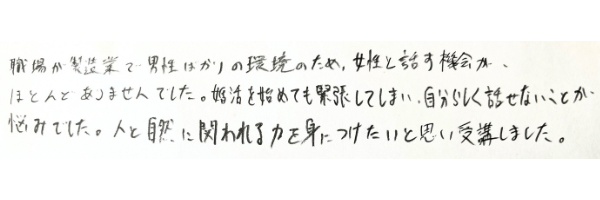 職場が製造業で男性ばかりの環境のため、女性と話す機会が、
ほとんどありませんでした。婚活を始めても緊張してしまい、自分らしく話せないことが
悩みでした。人と自然に関われる力を身につけたいと思い受講しました。